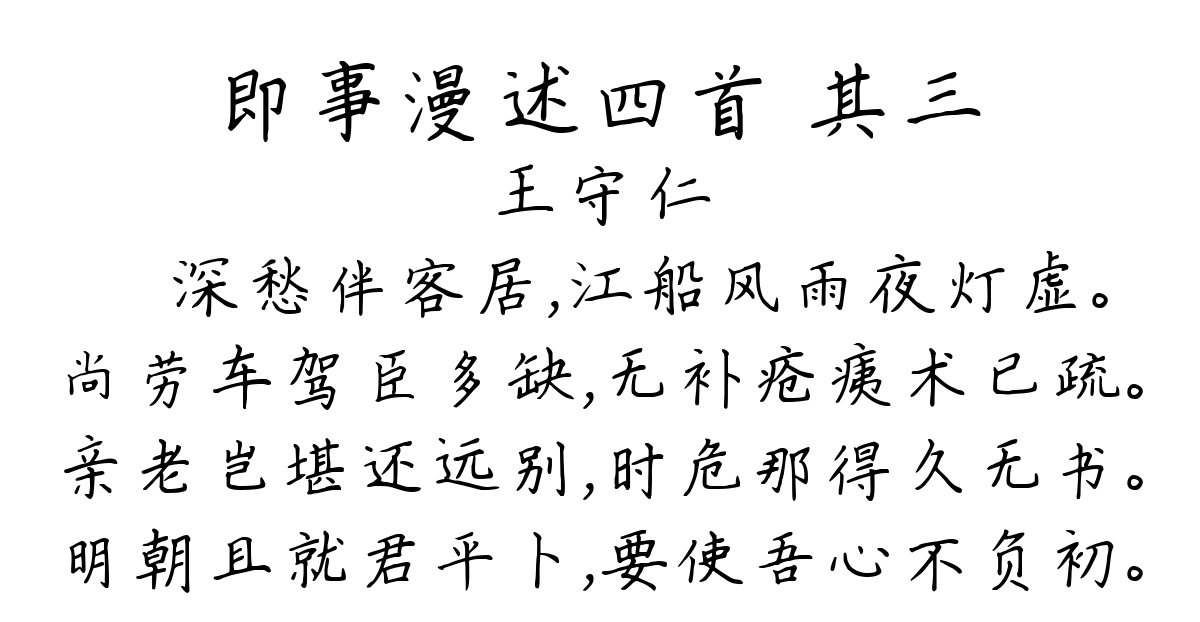 即事漫述四首 其三
王守仁
深愁伴客居,江船风雨夜灯虚。
尚劳车驾臣多缺,无补疮痍术已疏。
亲老岂堪还远别,时危那得久无书。
明朝且就君平卜,要使吾心不负初。